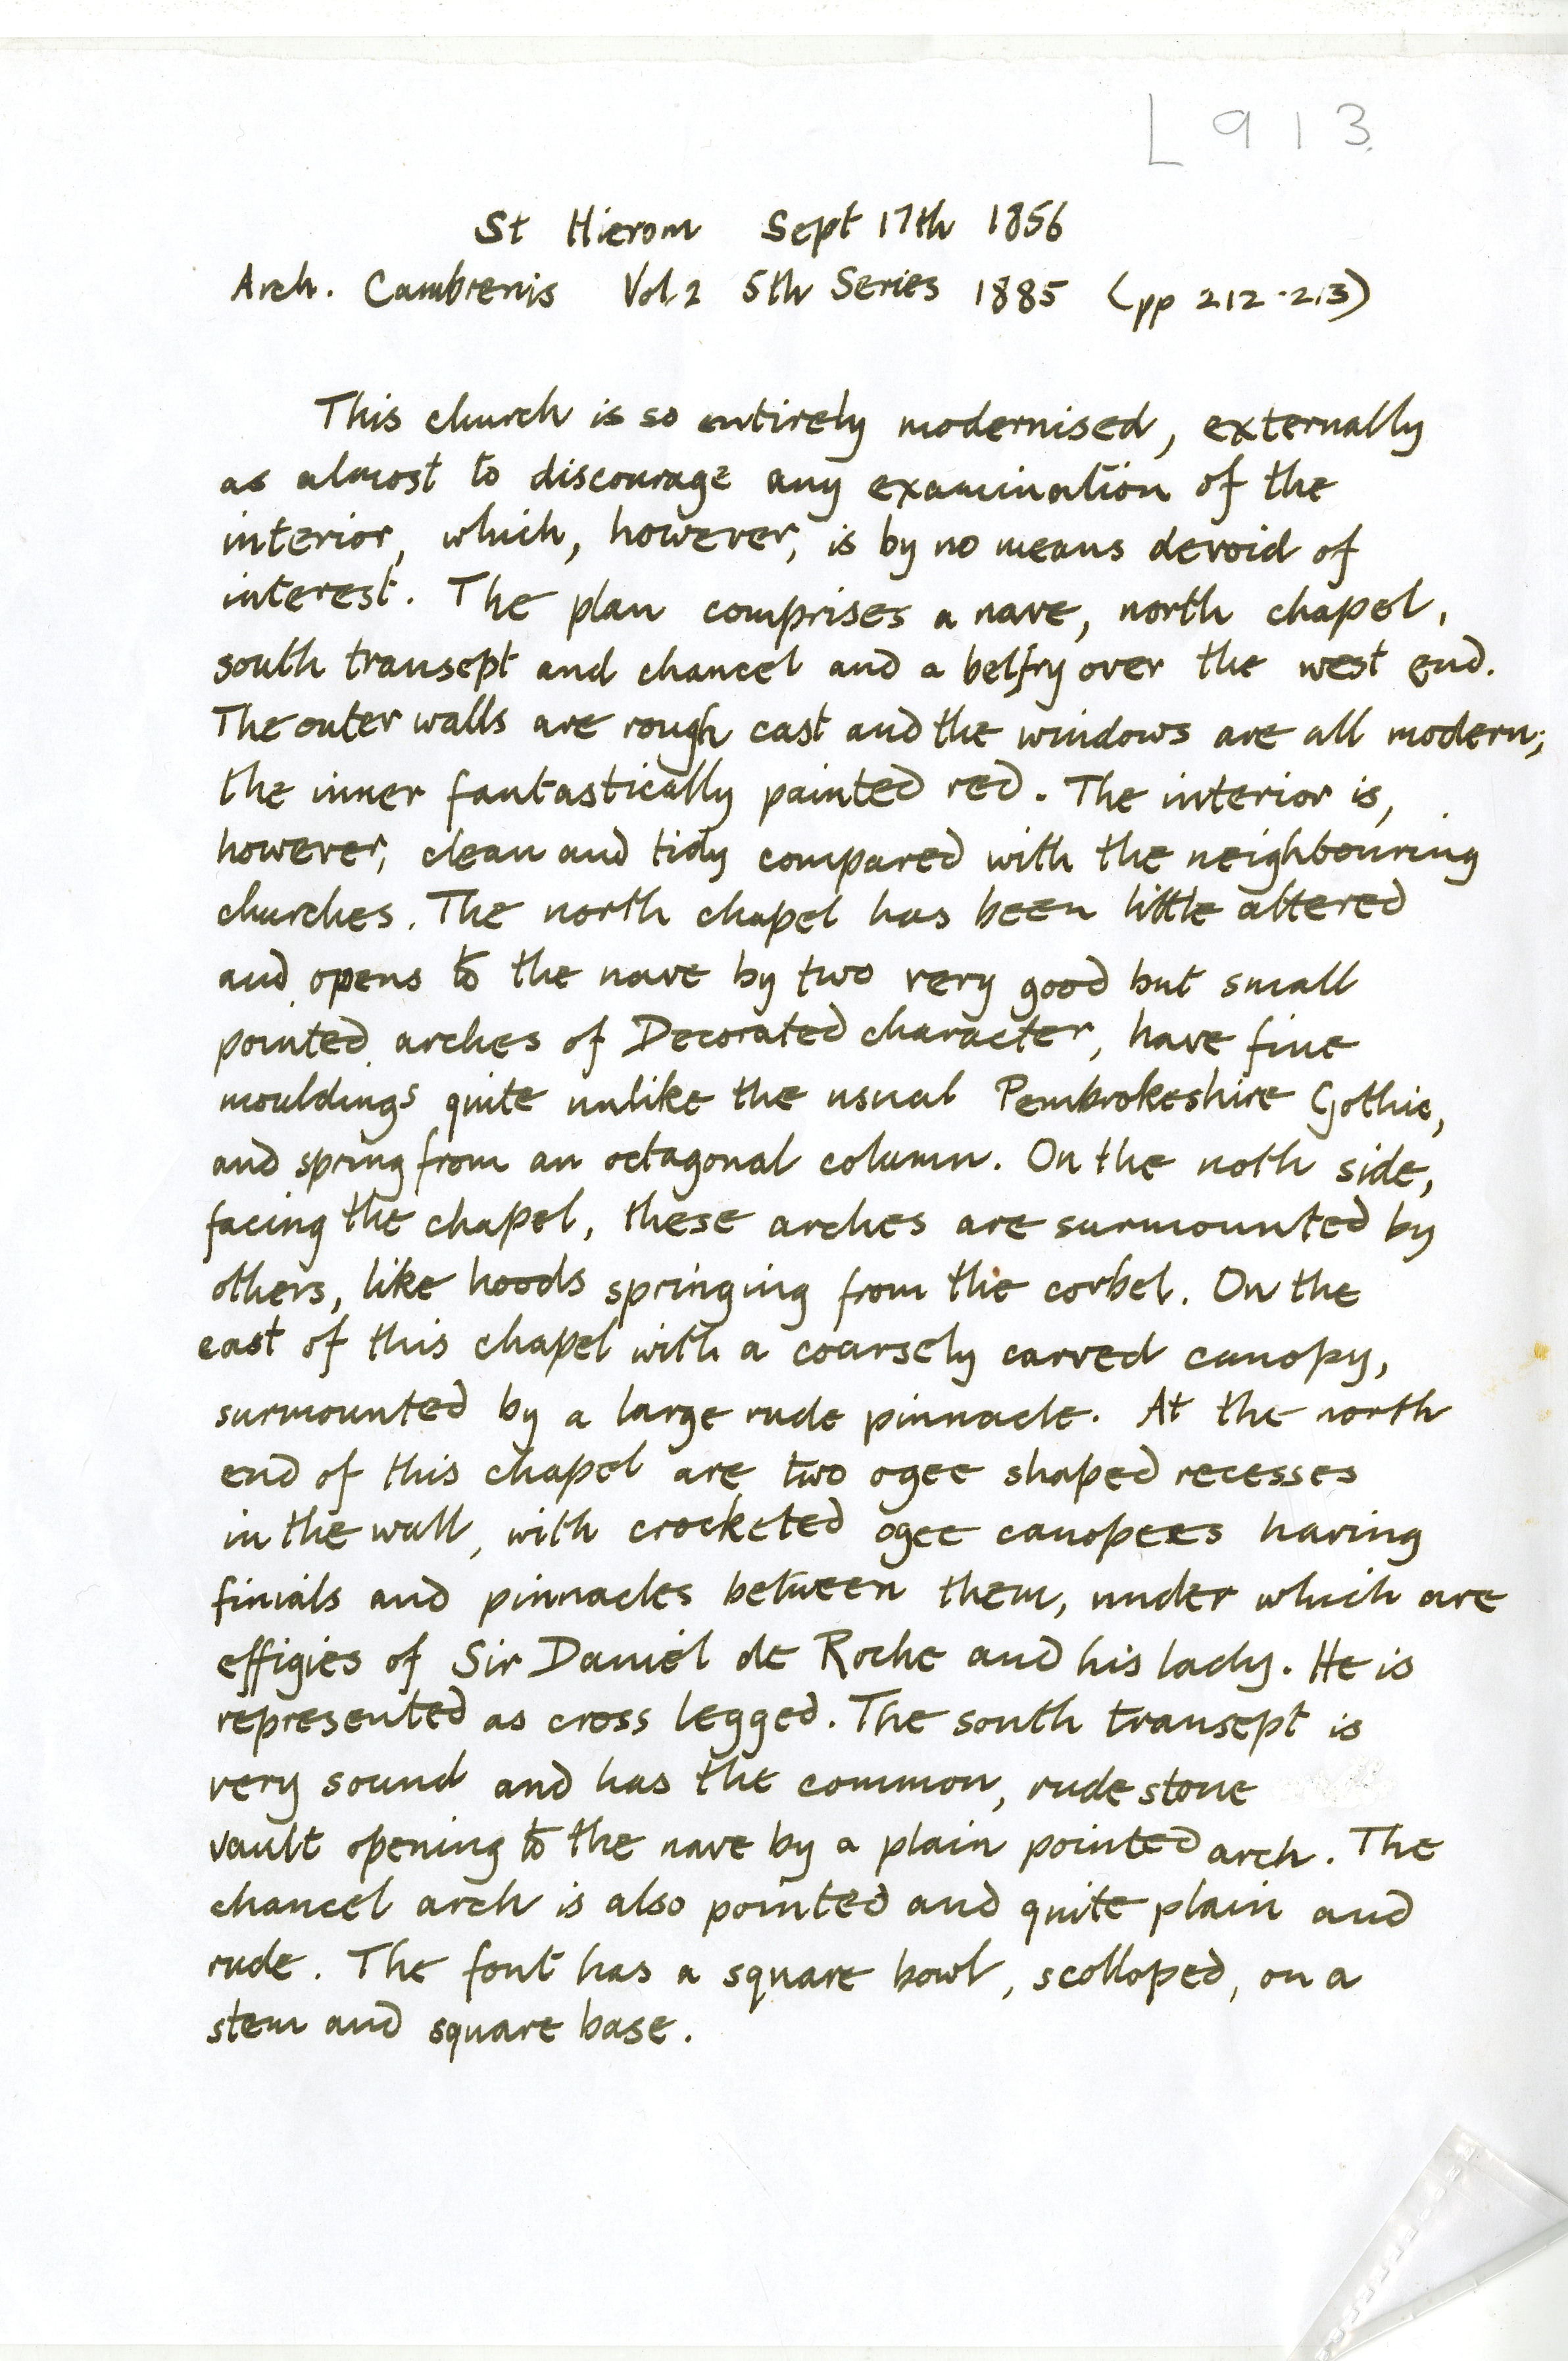 L 9 1 3.
St Hierom Sept 17th 1856
Arch. Cambrenis Vol 2 5th Series 1885 (pp 212-213)
This church is so entirely modernised, externally
as almost to discourage any examination of the
interior, which, however, is by no means devoid of
interest. The plan comprises a nave, north chapel,
south transept and chancel and a belfry over the west end.
The outer walls are rough cast and the windows are all modern;
the inner fantastically painted red. The interior is,
however, clean and tidy compared with the neighbouring
churches. The north chapel has been little altered
and opens to the nave by two very good but small
pointed arches of Decorated character, have fine
mouldings quite unlike the usual Pembrokeshire Gothic,
and spring from an octagonal column. On the noth side,
facing the chapel, these arches are surmounted by
others, like hoods springing from the corbel. On the
east of this chapel with a coarsely carved canopy,
surmounted by a large rude pinnacle. At the north
end of this chapel are two ogee shaped recesses
in the wall, with crocketed ogee canopees having
finials and pinnacles between them, under which are
effigies of Sir Daniel de Roche and his lady. He is
represented as cross legged. The south transept is
very sound and has the common, rude stone
vault opening to the nave by a plain pointed arch. The
chancel arch is also pointed and quite plain and
rude. The font has a square bowl, scolloped, on a
stem and square base.